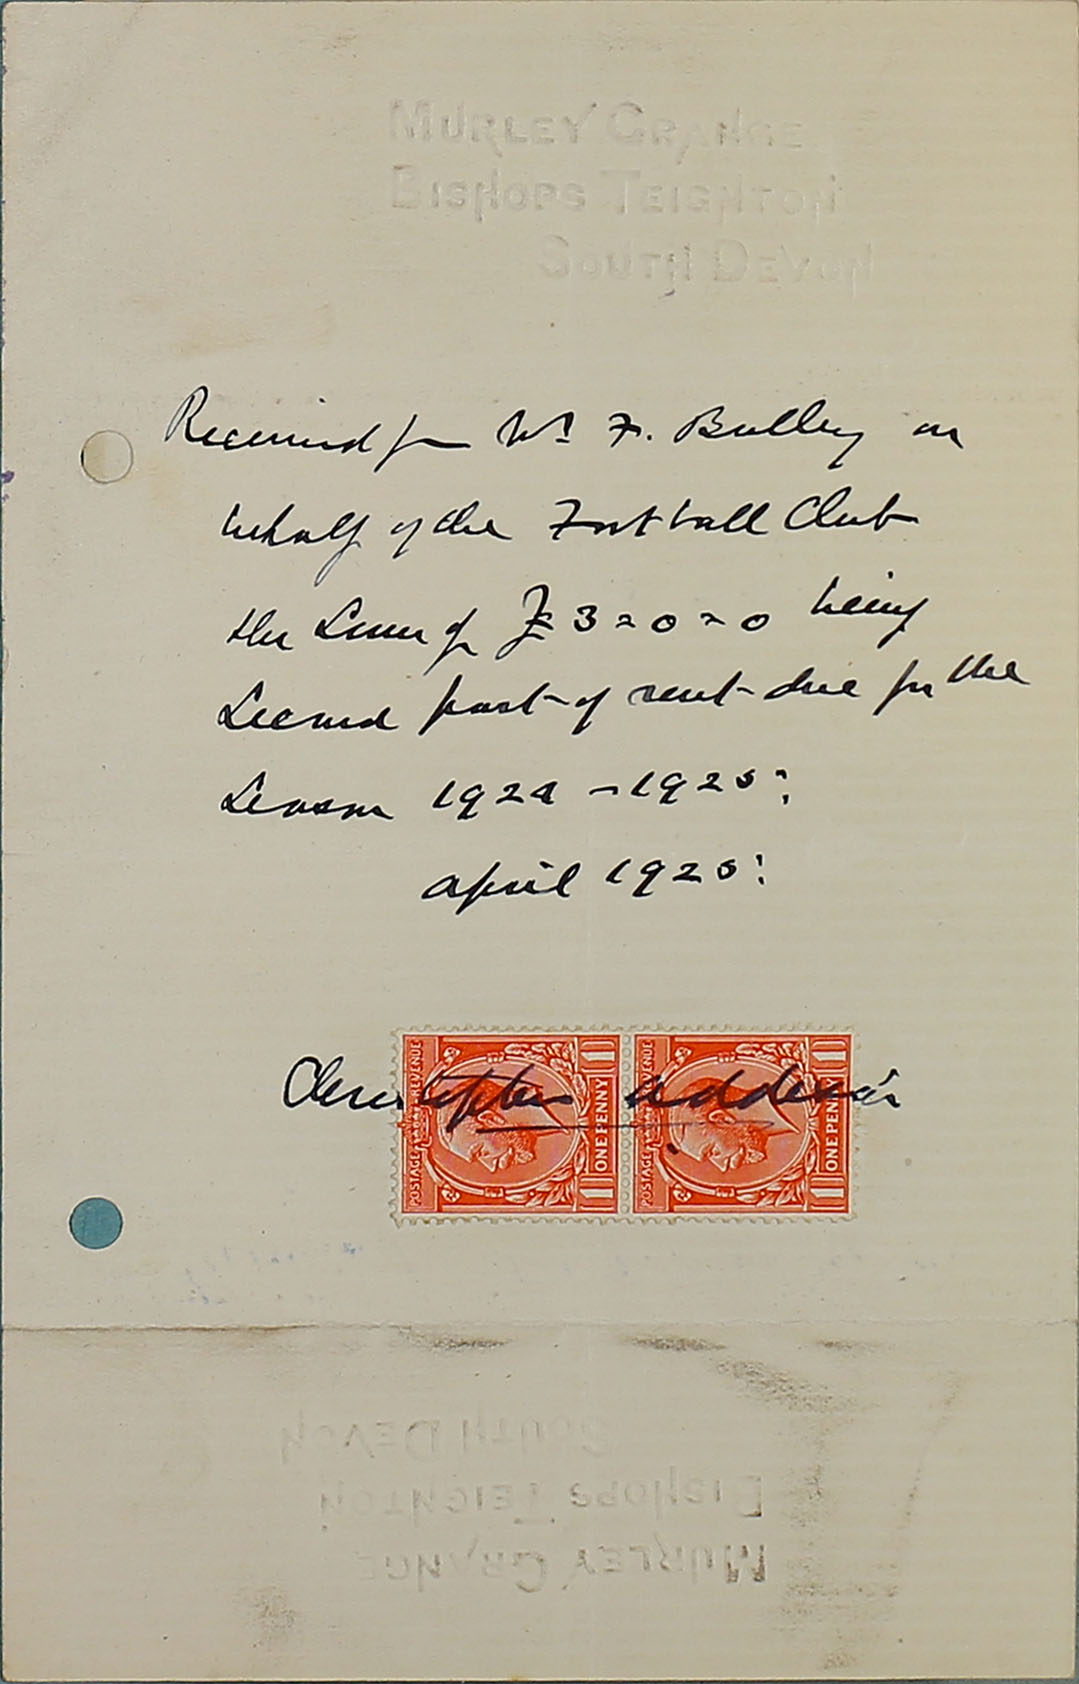 MURLEY GRANGE
BISHOPS TEIGNTON
SOUTH DEVON
Received from Mr F. Bulley on
behalf of the Football Club
the Sum of £3=0=0 being
Second part of rent due for the
Season 1924 - 1925:
April 1925:
Christopher Addexis
POSTAGE REVENUE
ONE PENNY
POSTAGE REVENUE
ONE PENNY
SOUTH DEVON
BISHOPS TEIGNTON
MURLEY GRANGE